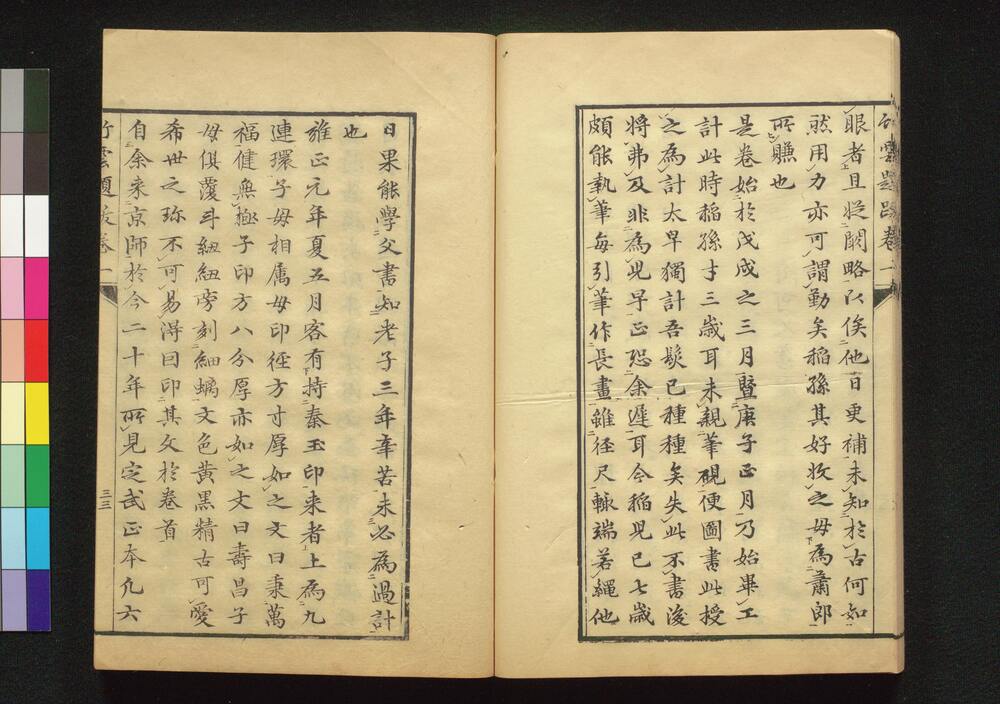 竹雲題跋卷一
眼者且從闕略以俟他日更補未知於古何如
然用力亦可謂勤矣稻孫其好收之毋為蕭郎
所賺也
是卷始於戊戌之三月暨庚子正月乃始畢工
計此時稻孫才三歲耳未親筆硯便圖書此授
之為計太早獨計吾鬚已種種矣失此不書後
將弗及非為兒早正恐余遲耳今稻兒已七歲
頗能執筆每引筆作長畫雖徑尺輙端若繩他
日果能學父書知老子三年辛苦未必為過計
也
雍正元年夏五月客有持秦玉印来者上為九
連環子母相属母印徑方寸厚如之文曰秉萬
福健無極子印方八分厚亦如之文曰壽昌子
母俱覆斗紐紐旁刻細螭文色黄黒精古可愛
希世之珎不可易得曰印其文於卷首
自余来京師於今二十年所見定武正本凢六
竹雲題跋卷一
三三